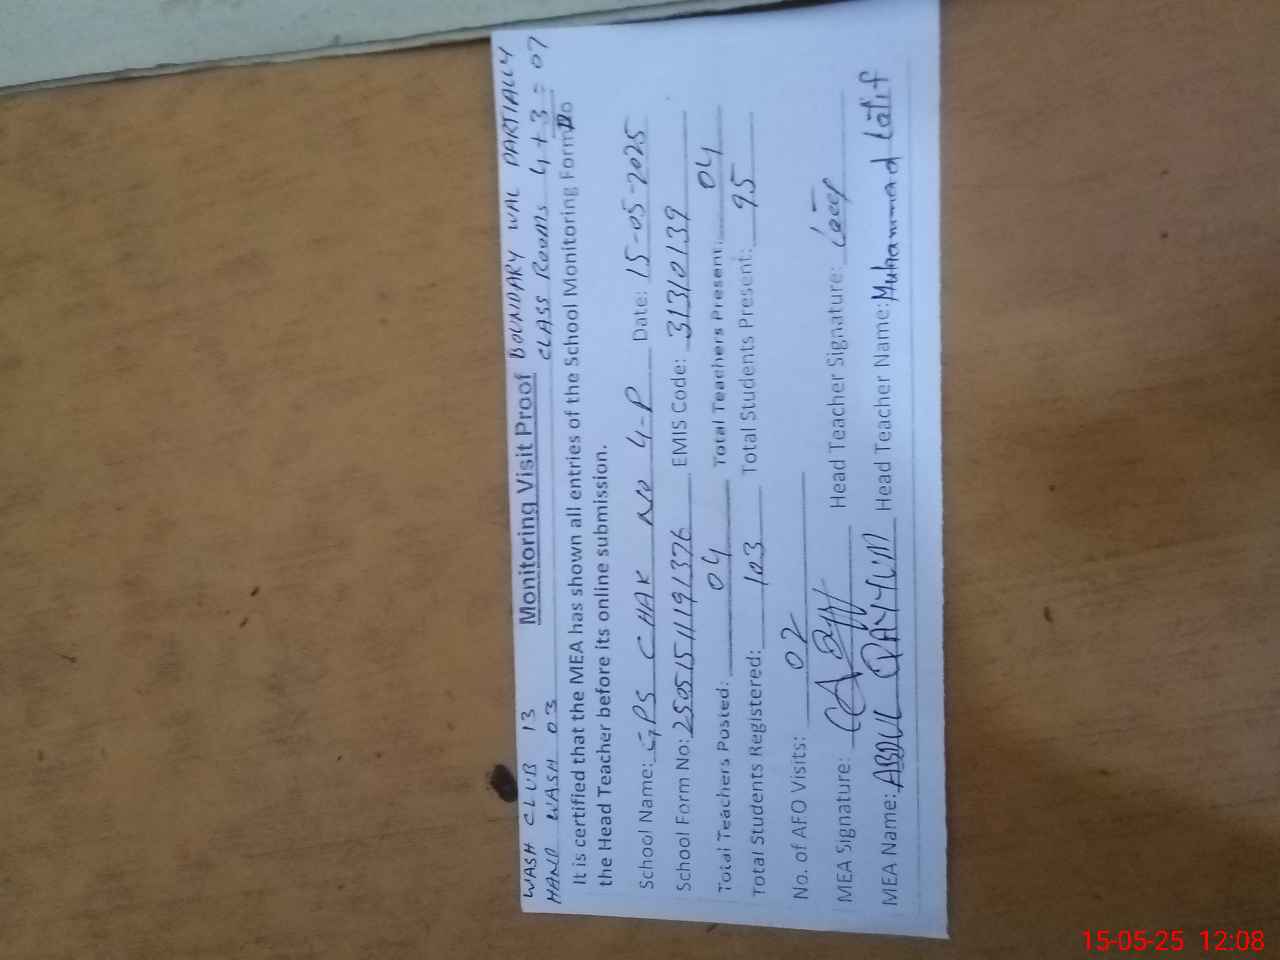 WASH CLUB 13 Monitoring Visit Proof BOUNDARY WAL PARTIALLY
HAND WASH 03 CLASS ROOMS 4+3=07
It is certified that the MEA has shown all entries of the School Monitoring Form to
the Head Teacher before its online submission.
School Name: GPS CHAK NO 4-P Date: 15-05-2025
School Form No: 25051511191376 EMIS Code: 31310139
Total Teachers Posted: 04 Total Teachers Present: 04
Total Students Registered: 103 Total Students Present: 95
No. of AFO Visits: 02
MEA Signature: Head Teacher Signature:
MEA Name: ABDUL QAYYUM Head Teacher Name: Muhammad Latif
15-05-25 12:08